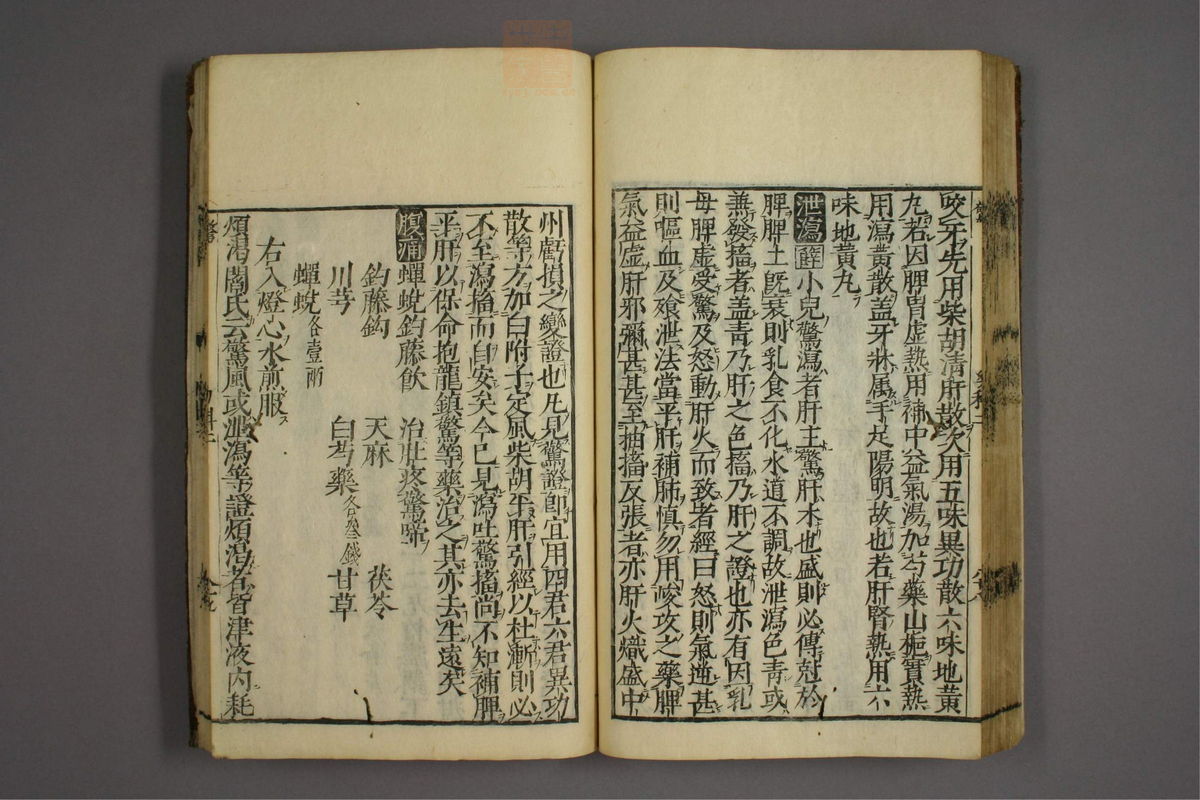 咬牙先用柴胡清肝散次用五味異功散六味地黃
丸若因脾胃虛熱用補中益氣湯加芍藥山梔實熱
用瀉黃散蓋牙牀属手足陽明故也若肝腎熱用六
味地黃丸
泄瀉 薛 小兒驚瀉者肝主驚肝木也盛則必傳尅於
脾脾土既衰則乳食不化水道不調故泄瀉色青或
兼發搐者蓋青乃肝之色搐乃肝之證也亦有因乳
母脾虛受驚及怒動肝火而致者經曰怒則氣逆甚
則嘔血及飱泄法當平肝補脾慎勿用峻攻之藥脾
氣益虛肝邪彌甚甚至抽搐反張者亦肝火熾盛中
州虧損之變證也凡見驚證即宜用四君六君異功
散等方加白附子定風柴胡平肝引經以杜漸則必
不至瀉搐而自安矣今已見瀉吐驚搐尚不知補脾
平肝以保命抱龍鎮驚等藥治之其亦去生遠矣
腹痛 蟬蛻鈎藤飲 治肚疼驚啼
鈎藤鈎 天麻 茯苓
川芎 白芍藥各叁錢 甘草
蟬蛻各壹兩
右入燈心水煎服
煩渴 閻氏云驚風或泄瀉等證煩渴者皆津液内耗